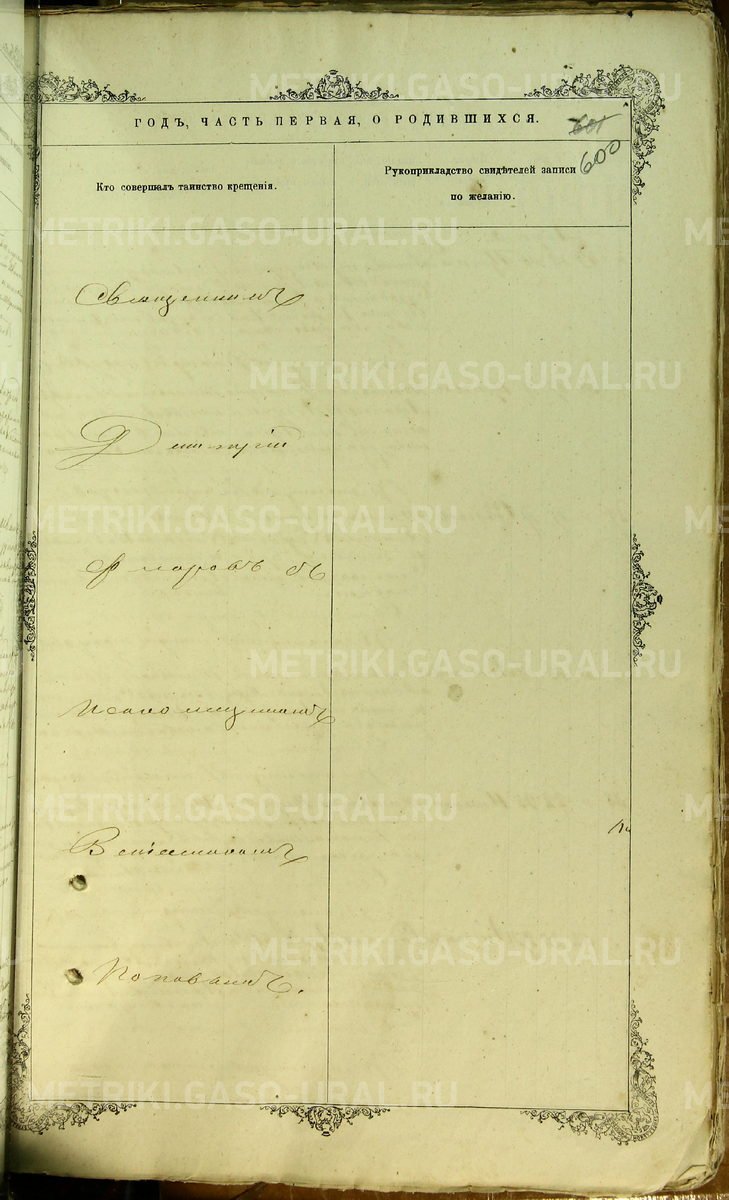 METRIKI.GASO-URAL.RU
ГОДЪ, ЧАСТЬ ПЕРВАЯ, О РОДИВШИХСЯ.
601
600
Кто совершалъ таинство крещенія.
Рукоприкладство свидѣтелей записи
по желанію.
METRIKI.GASO-URAL.RU
Священникъ
METRIKI.GASO-URAL.RU
Димитрій
METRIKI.GASO-URAL.RU
съ
METRIKI.GASO-URAL.RU
Псаломщикомъ
METRIKI.GASO-URAL.RU
Поповымъ.
METRIKI.GASO-URAL.RU
METRIKI.GASO-URAL.RU